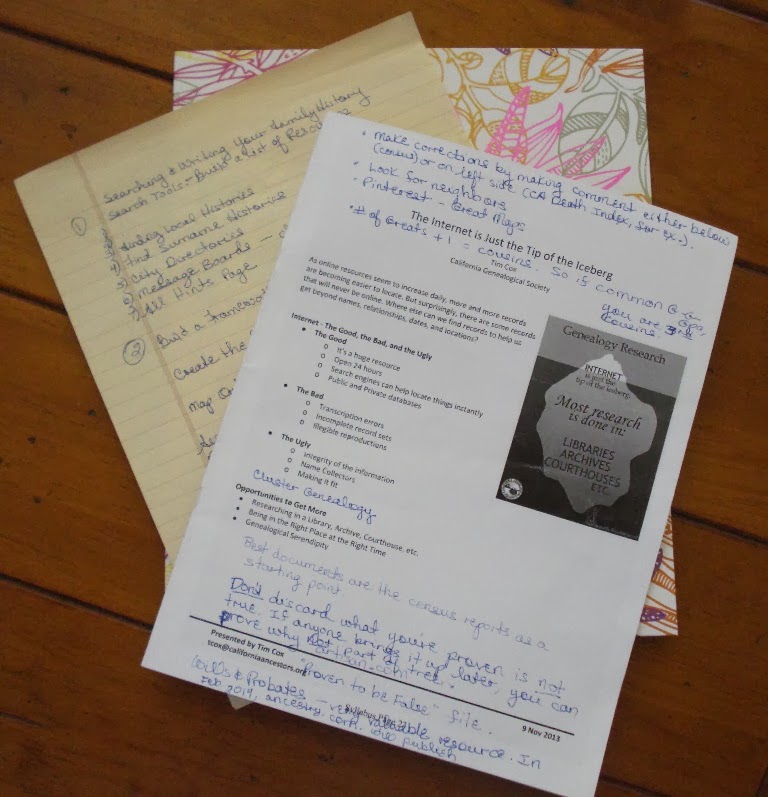 Searching & Writing Your Family History
Search Tools - Build a List of
①
Finding Local Histories
Find Surname Histories
5) City Directories
6) Message Boards -
7) All Hints Page
②
Build a
Create the
Map
• Make corrections by making comment either below
(census) or on left side (CA Death Index, for ex.).
• Look for neighbors
• Pinterest - Great Maps
• # of Greats + 1 = cousins. So if common G
Gpa,
you are 3rd
cousins.
The Internet is Just the Tip of the Iceberg
Tim Cox
California Genealogical Society
As online resources seem to increase daily, more and more records
are becoming easier to locate. But surprisingly, there are some records
that will never be online. Where else can we find records to help us
get beyond names, relationships, dates, and locations?
Internet - The Good, the Bad, and the Ugly
• The Good
o It's a huge resource
o Open 24 hours
o Search engines can help locate things instantly
o Public and Private databases
• The Bad
o Transcription errors
o Incomplete record sets
o Illegible reproductions
• The Ugly
o Integrity of the information
o Name Collectors
o Making it fit
Cluster Genealogy
Opportunities to Get More
• Researching in a Library, Archive, Courthouse, etc.
• Being in the Right Place at the Right Time
• Genealogical Serendipity
Genealogy Research
INTERNET
is just the
tip of the iceberg.
Most research
is done in:
LIBRARIES
ARCHIVES
COURTHOUSES
ETC.
Best documents are the census reports as a
starting point.
Don't discard what you've proven is not
true. If anyone brings it up later, you can
prove why not part of tree.
"Proven to be False" file.
Presented by Tim Cox
tcox@californiaancestors.org
Syllabus Page 22
9 Nov 2013
Wills & Probates - very valuable resource. In
Feb 2014, ancestry.com will publish